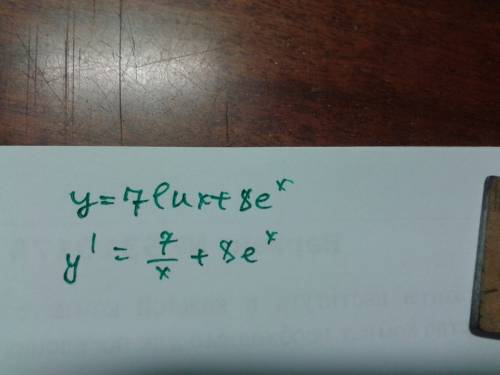 y = 7 ln x + 8e^x
y' = 7/x + 8e^x